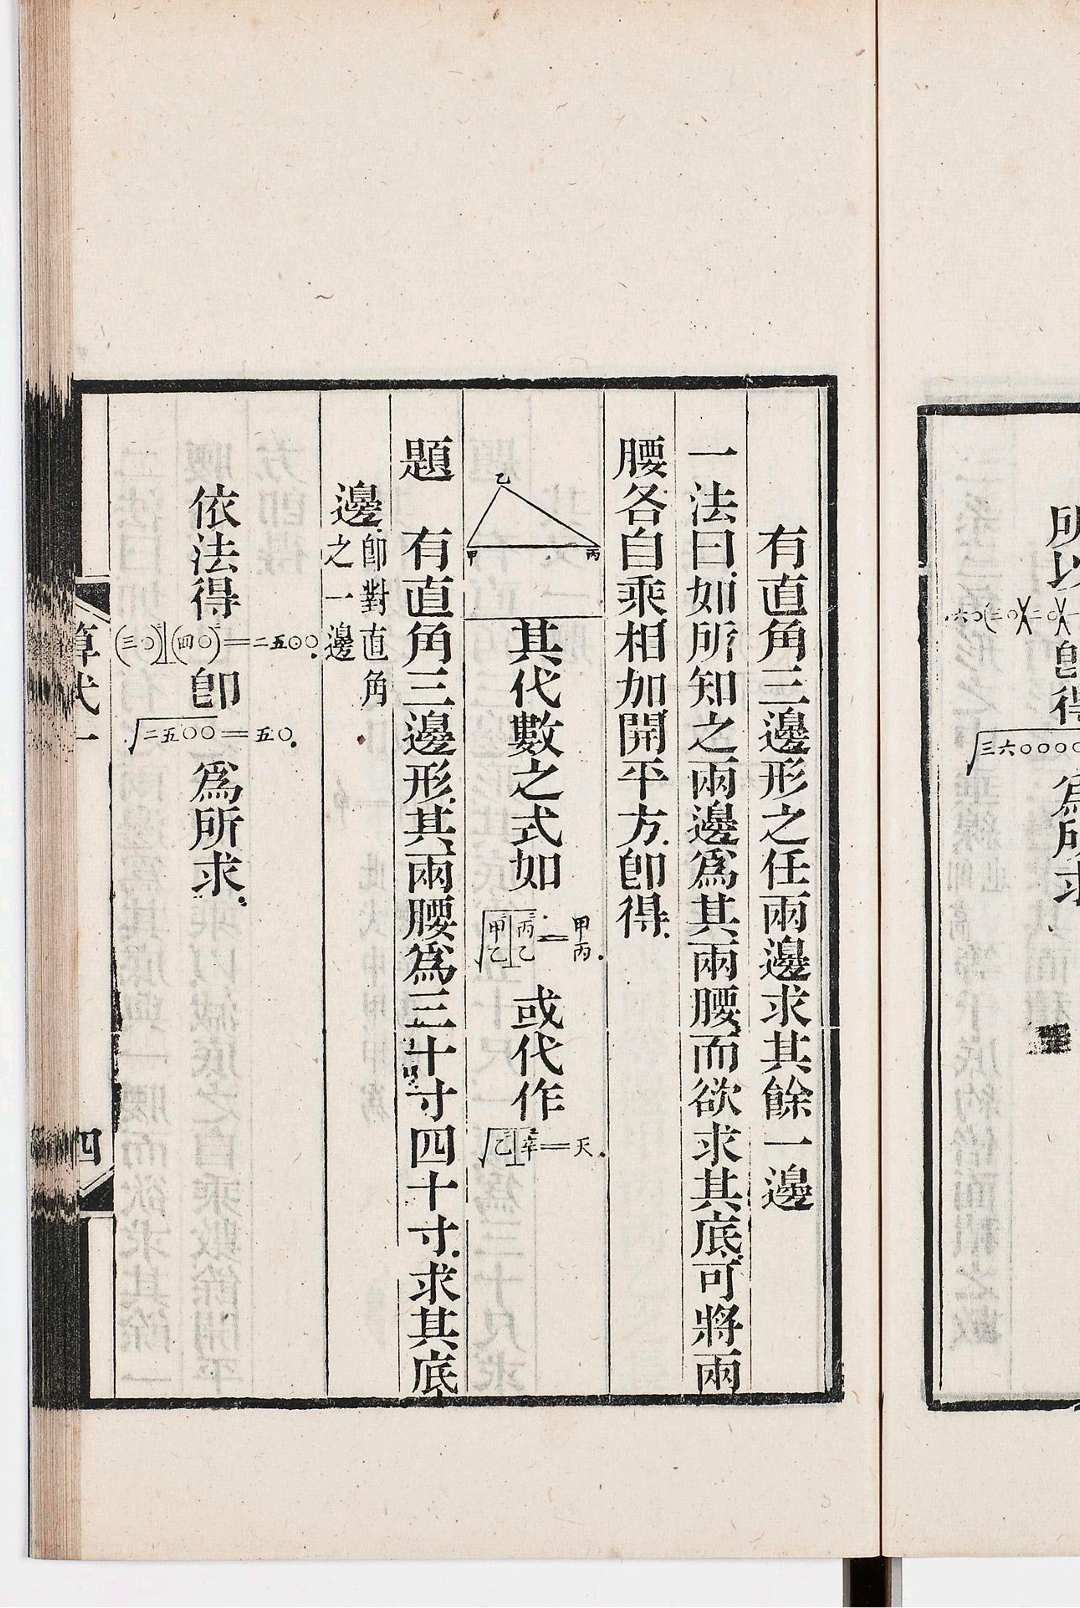 所以
六〇(三〇
卽得
三六〇〇〇〇
爲所求
有直角三邊形之任兩邊求其餘一邊
一法曰如所知之兩邊爲其兩腰而欲求其底可將兩
腰各自乘相加開平方卽得
乙
甲
丙
其代數之式如
甲乙⊥丙乙=甲丙
或代作
乙⊥辛=天
題 有直角三邊形其兩腰爲三十寸四十寸求其底
邊卽對直角
之一邊
依法得(三〇)⊥(四〇)=二五〇〇卽√二五〇〇=五〇爲所求
四